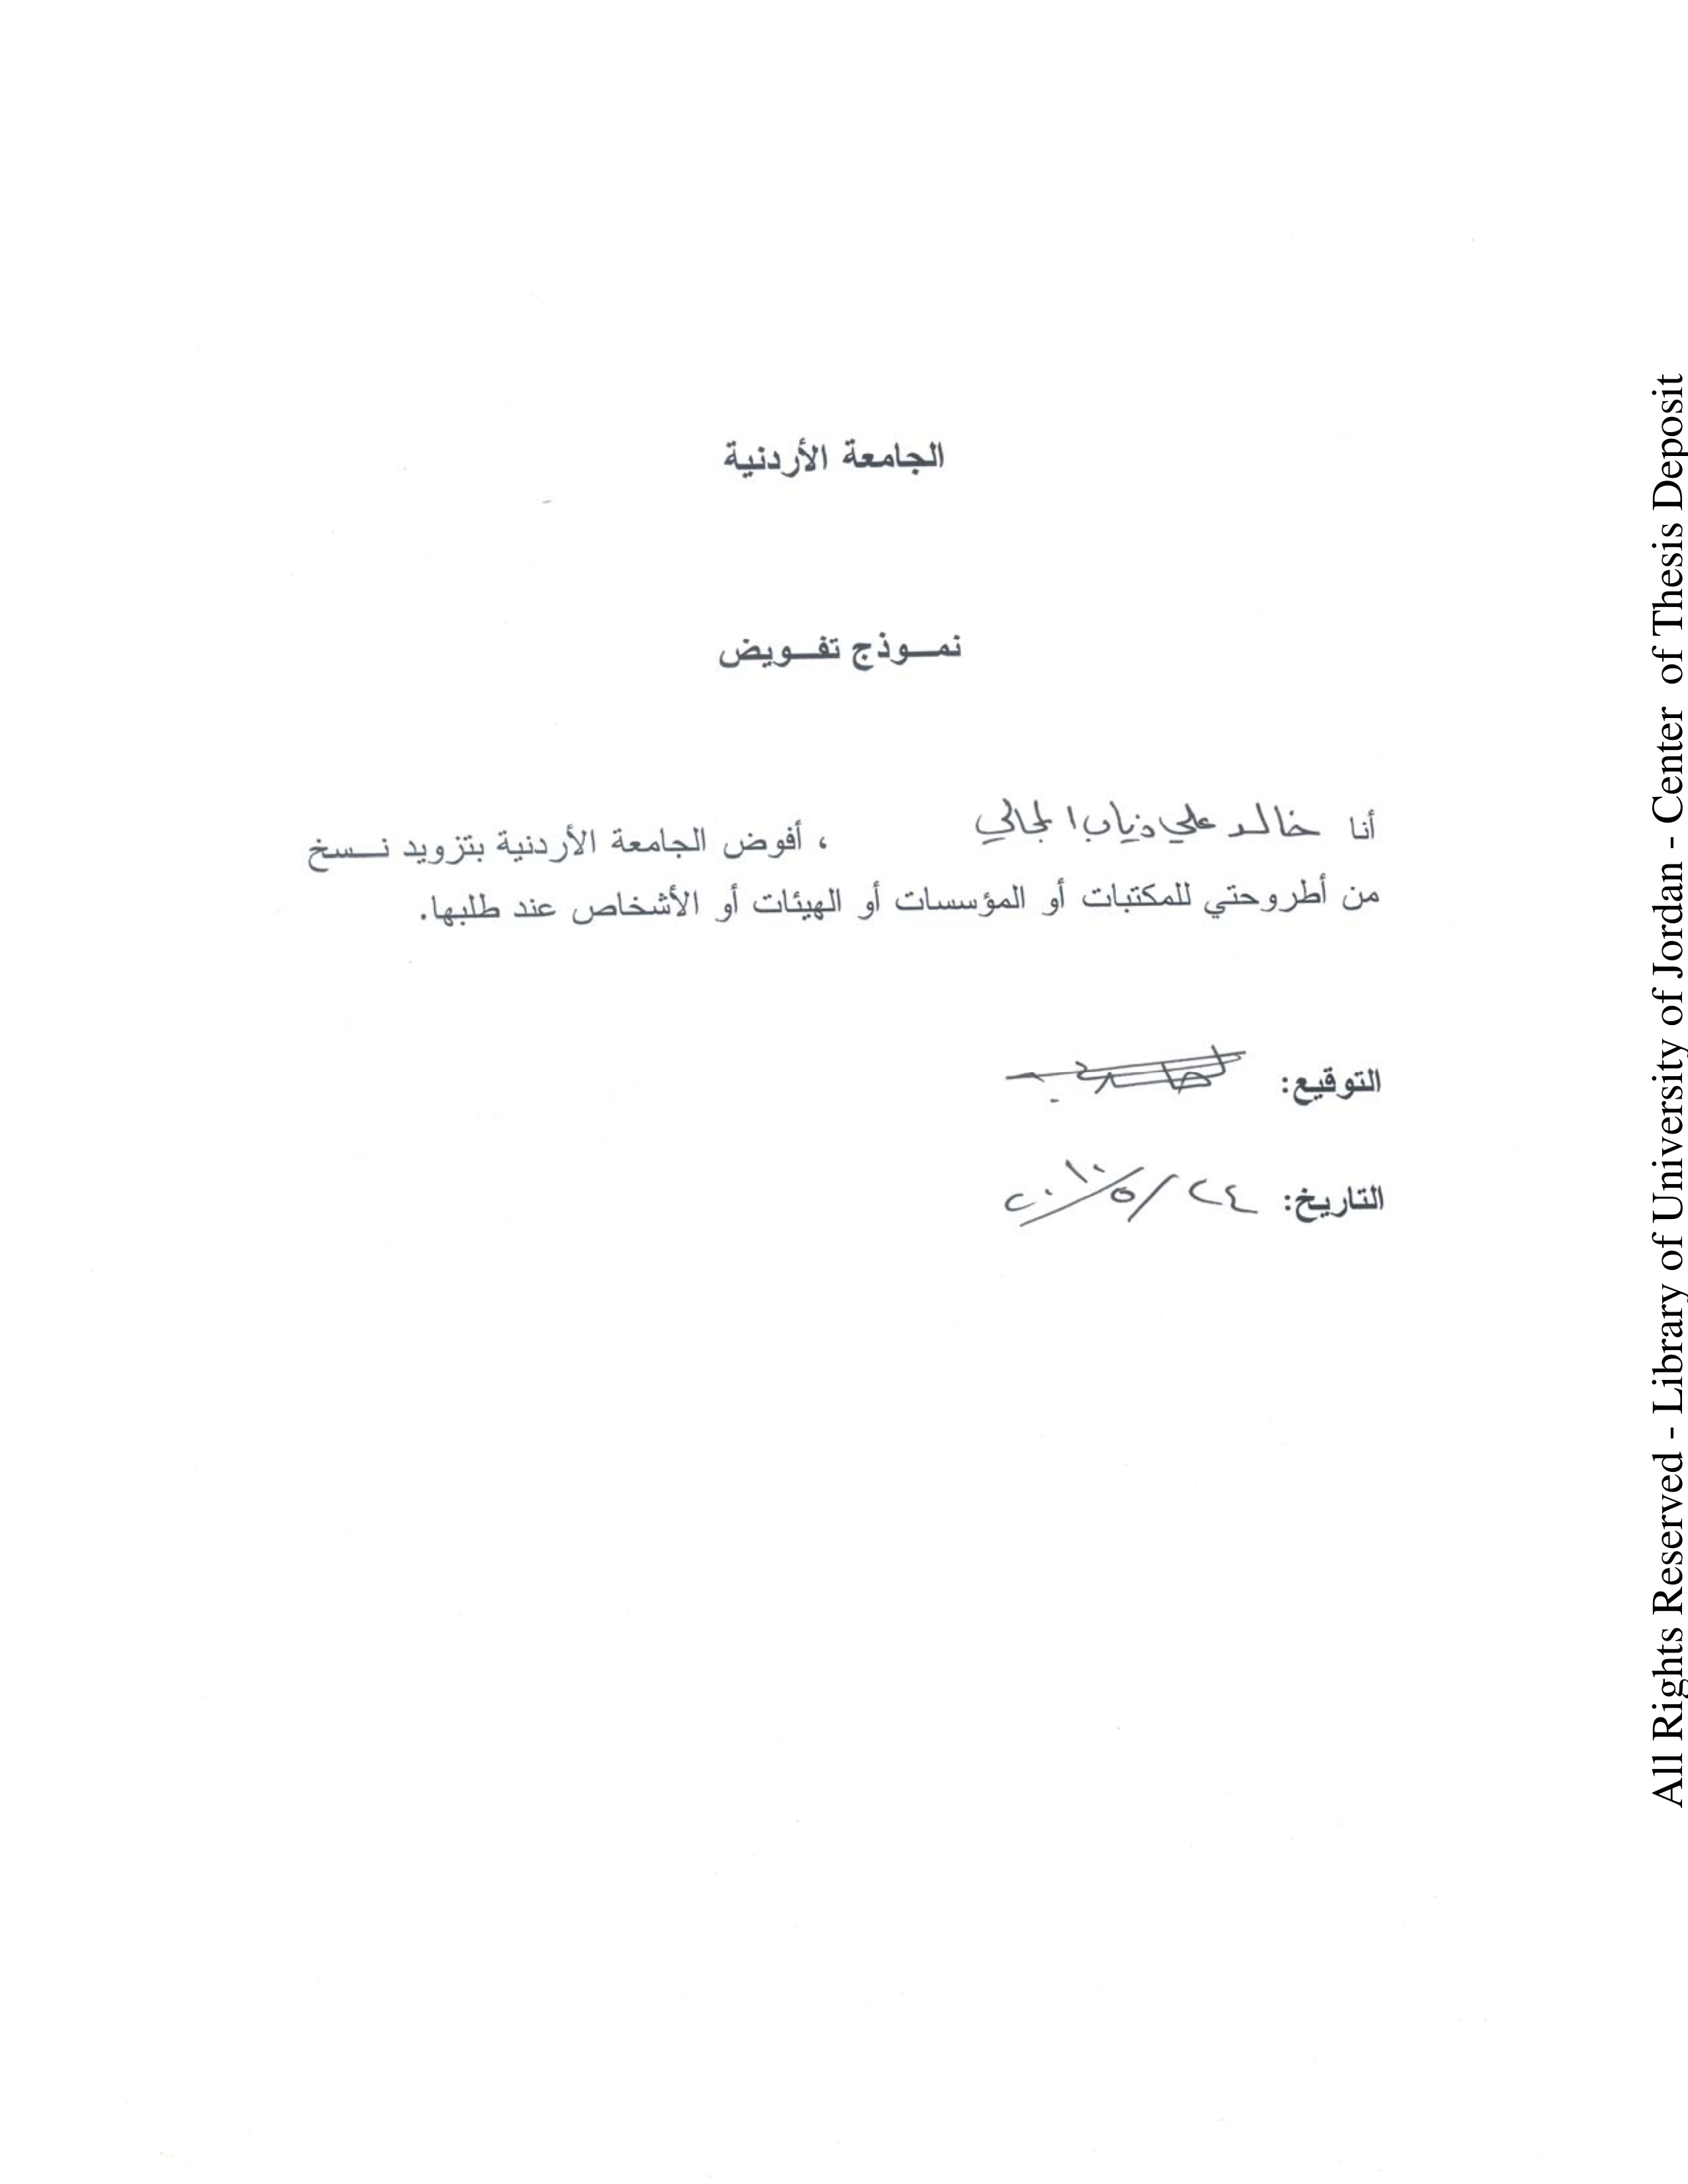 الجامعة الأردنية
نمـوذج تفـويض
أنا خالد علي ذياب المجالي ، أفوض الجامعة الأردنية بتزويد نسخ
من أطروحتي للمكتبات أو المؤسسات أو الهيئات أو الأشخاص عند طلبها.
التوقيع:
التاريخ: ٢٤/٥/٢٠١٠
All Rights Reserved - Library of University of Jordan - Center of Thesis Deposit